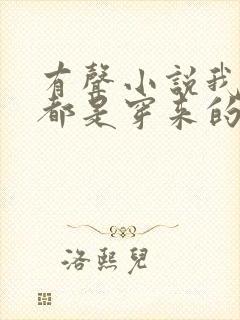 有聲小說我
都是穿来的
洛熙兒